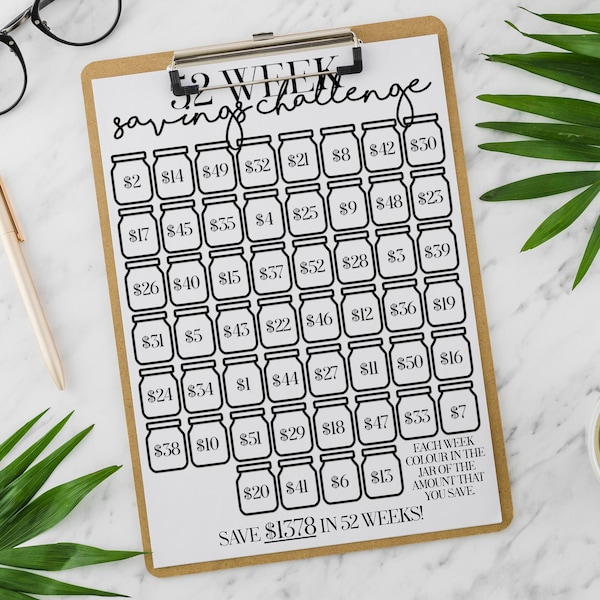 52 WEEK
savings challenge
$2 $14 $49 $32 $21 $8 $42 $30
$17 $45 $35 $4 $25 $9 $48 $23
$26 $40 $15 $37 $52 $28 $3 $39
$31 $5 $43 $22 $46 $12 $36 $19
$24 $34 $1 $44 $27 $11 $50 $16
$38 $10 $51 $29 $18 $47 $33 $7
$20 $41 $6 $13
EACH WEEK
COLOUR IN THE
JAR OF THE
AMOUNT THAT
YOU SAVE.
SAVE $1378 IN 52 WEEKS!